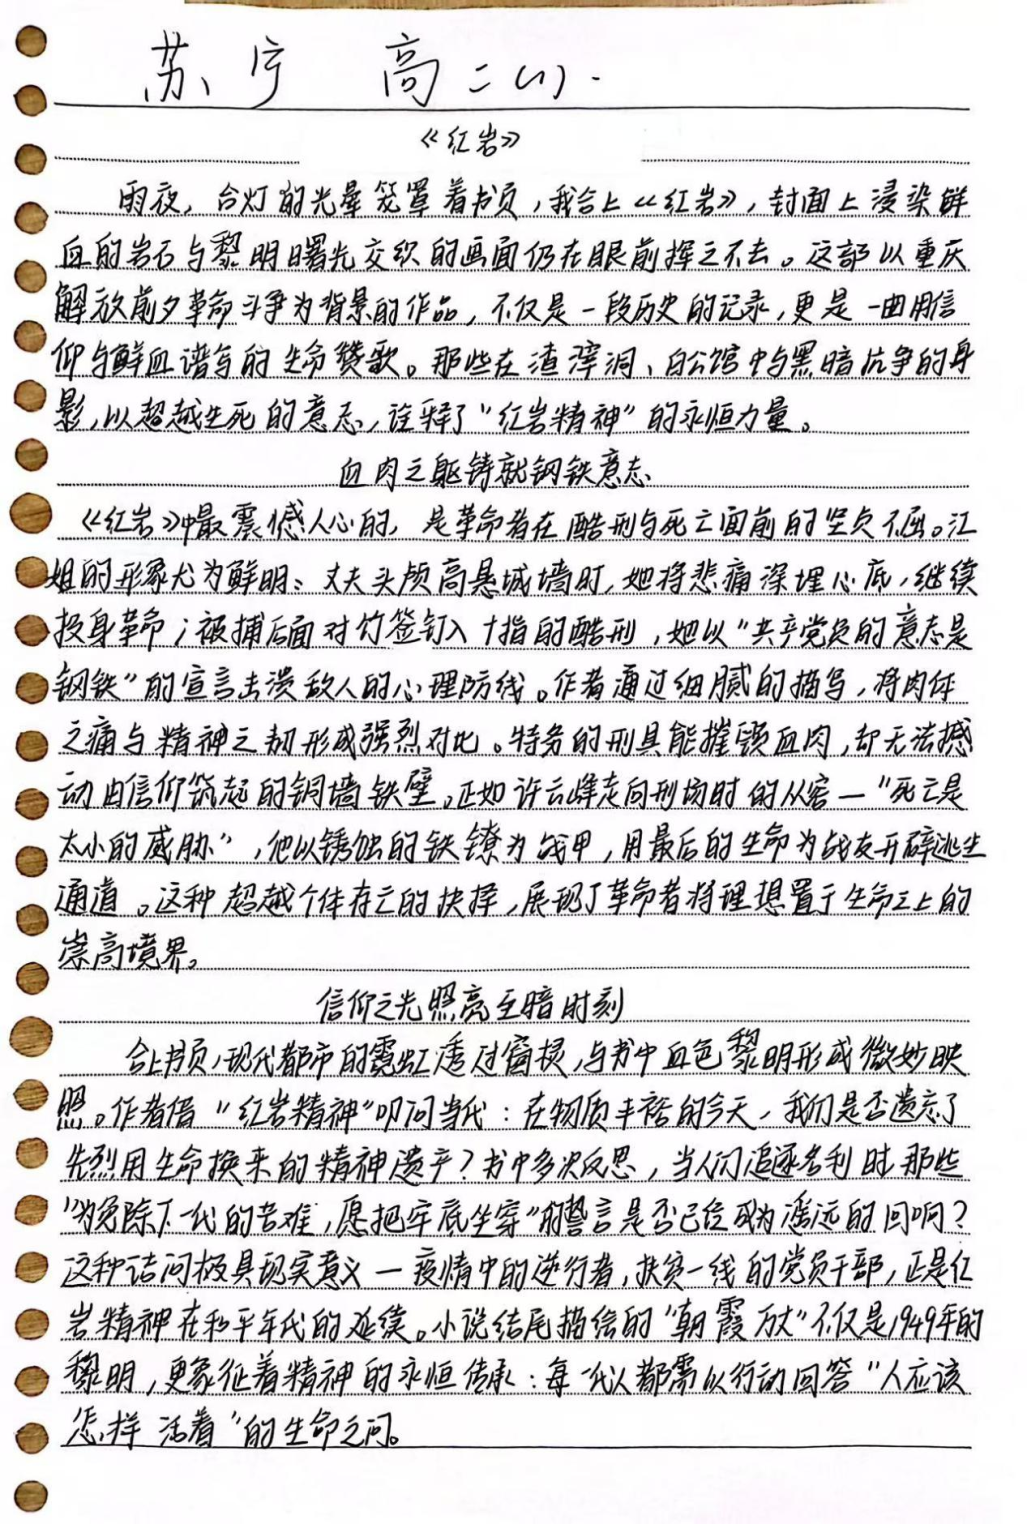 苏宁 高二(1).
《红岩》
雨夜，台灯的光晕笼罩着书页，我合上《红岩》，封面上浸染鲜
血的岩石与黎明曙光交织的画面仍在眼前挥之不去。这部以重庆
解放前夕革命斗争为背景的作品，不仅是一段历史的记录，更是一曲用信
仰与鲜血谱写的生命赞歌。那些在渣滓洞、白公馆中与黑暗抗争的身
影，以超越生死的意志，诠释了“红岩精神”的永恒力量。
血肉之躯铸就钢铁意志
《红岩》中最震憾人心的，是革命者在酷刑与死亡面前的坚贞不屈。江
姐的形象尤为鲜明：丈夫头颅高悬城墙时，她将悲痛深埋心底，继续
投身革命；被捕后面对竹签钉入十指的酷刑，她以“共产党员的意志是
钢铁”的宣言击溃敌人的心理防线。作者通过细腻的描写，将肉体
之痛与精神之韧形成强烈对比。特务的刑具能摧毁血肉，却无法撼
动由信仰筑起的铜墙铁壁。正如许云峰走向刑场时的从容—“死亡是
太小的威胁”，他以锈蚀的铁镣为战甲，用最后的生命为战友开辟逃生
通道。这种超越个体存亡的抉择，展现了革命者将理想置于生命之上的
崇高境界。
信仰之光照亮至暗时刻
合上书页，现代都市的霓虹透过窗棂，与书中血色黎明形成微妙映
照。作者借“红岩精神”叩问当代：在物质丰裕的今天，我们是否遗忘了
先烈用生命换来的精神遗产？书中多次反思，当人们追逐名利时那些
“为免除下一代的苦难，愿把牢底坐穿”的誓言是否已经成为遥远的回响？
这种诘问极具现实意义—疫情中的逆行者，扶贫一线的党员干部，正是红
岩精神在和平年代的延续。小说结尾描绘的“朝霞万丈”不仅是1949年的
黎明，更象征着精神的永恒传承：每一代人都需以行动回答“人应该
怎样活着”的生命之问。